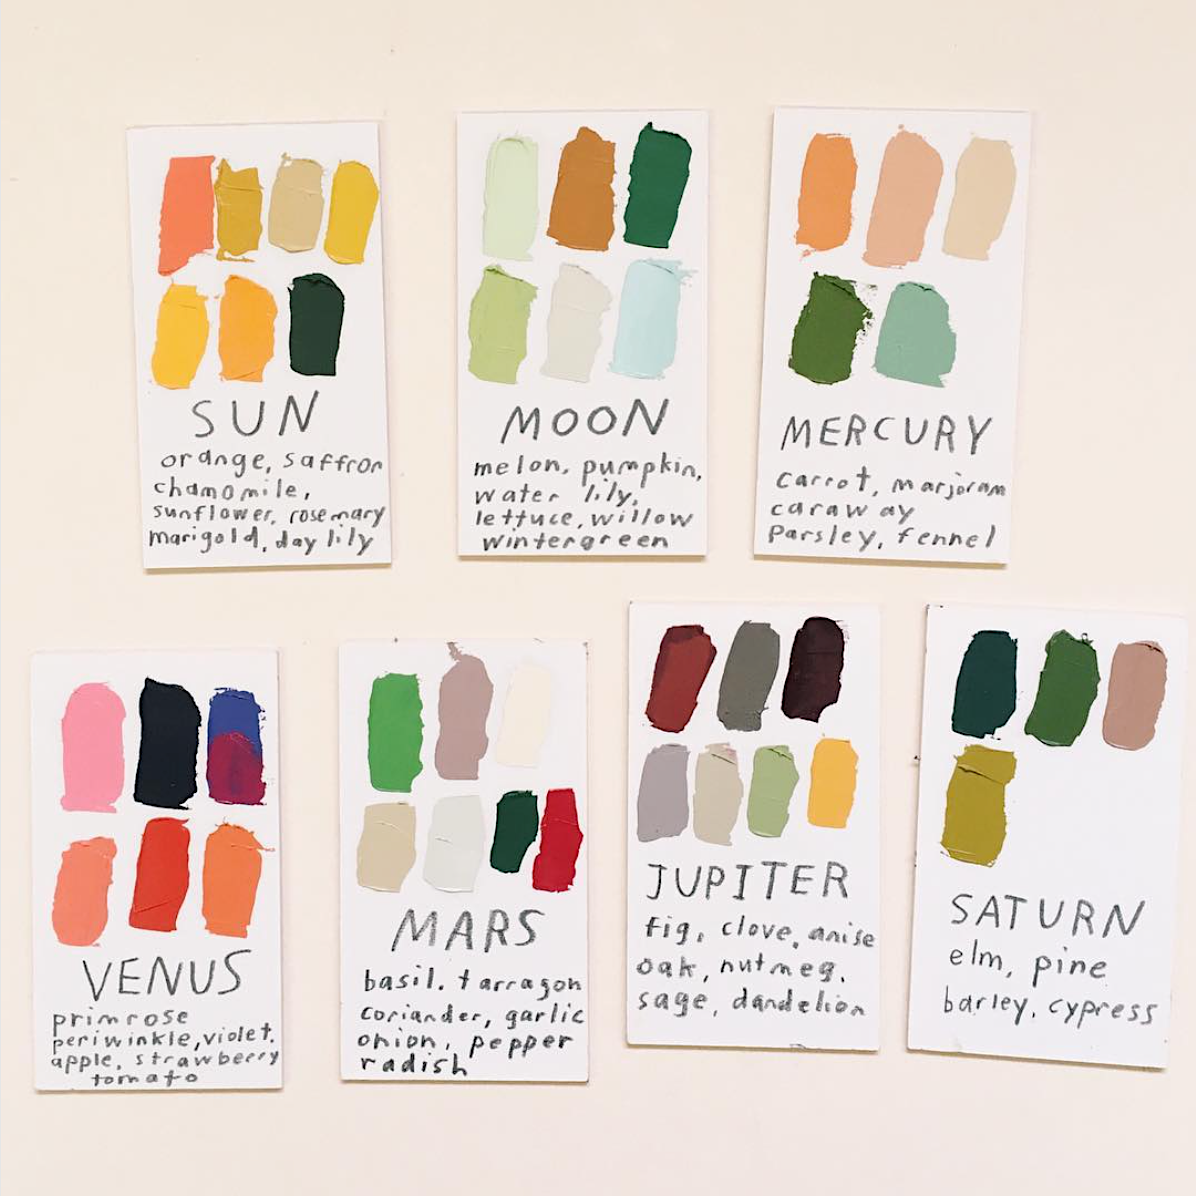 SUN
orange, saffron
chamomile,
sunflower, rosemary
marigold, day lily
MOON
melon, pumpkin,
water lily,
lettuce, willow
wintergreen
MERCURY
carrot, marjoram
caraway
Parsley, fennel
VENUS
primrose
periwinkle, violet,
apple, strawberry
tomato
MARS
basil, tarragon
coriander, garlic
onion, pepper
radish
JUPITER
fig, clove, anise
oak, nutmeg,
sage, dandelion
SATURN
elm, pine
barley, cypress